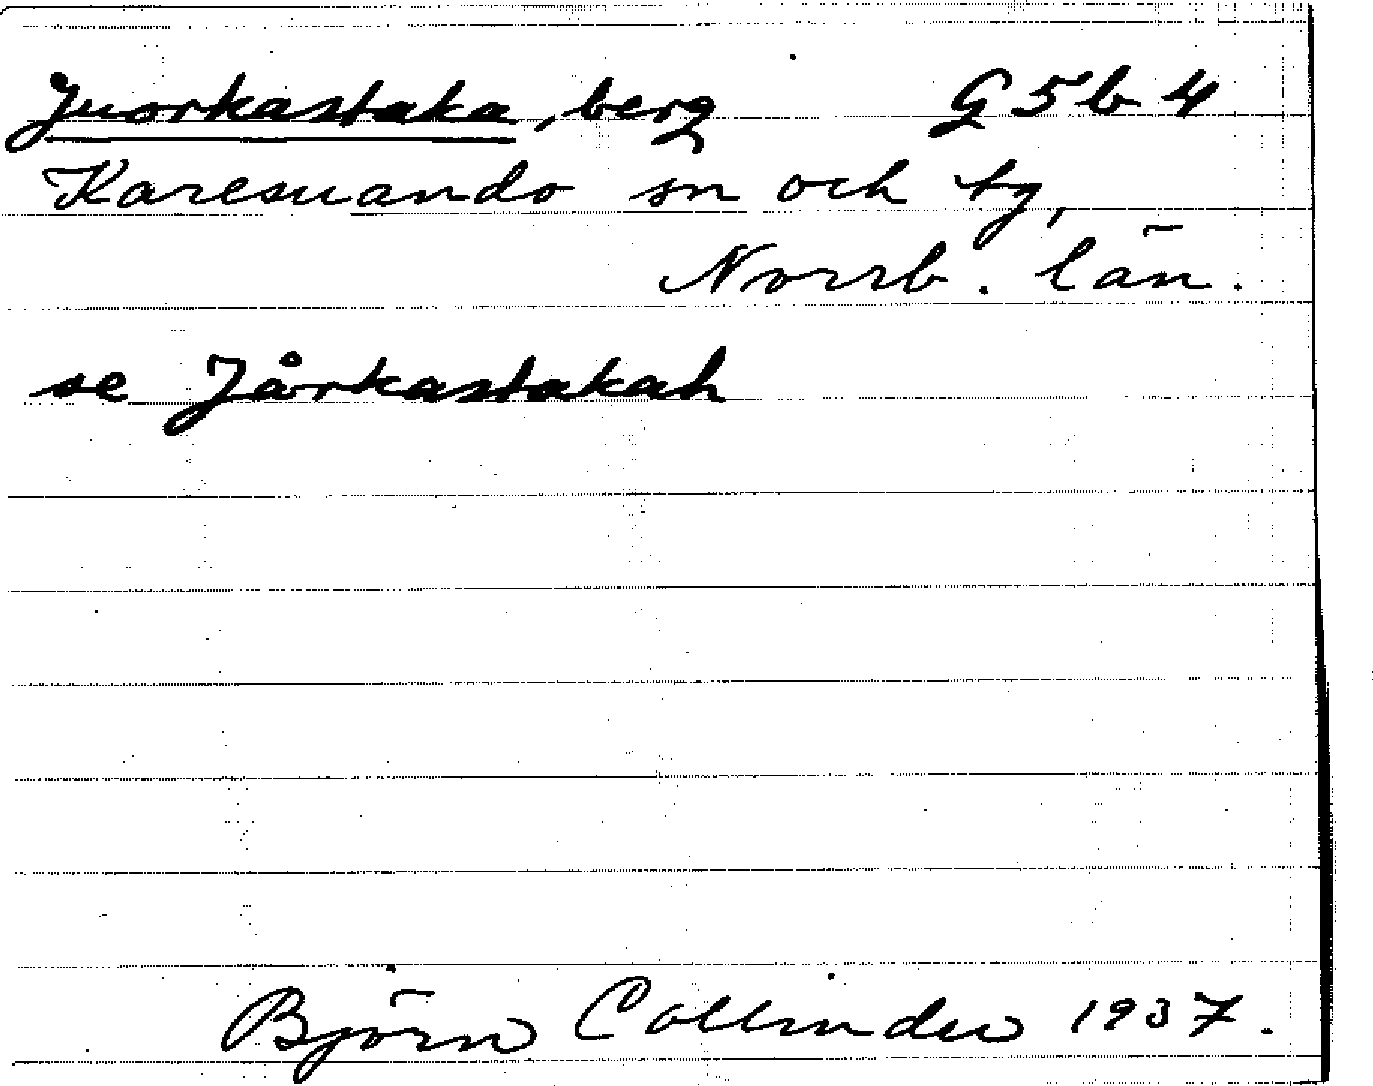 Juorkastaka, berg G5b4
Karesuando sn och tg,
Norrb. län.
se Jårkastakah
Björn Collinder 1937.